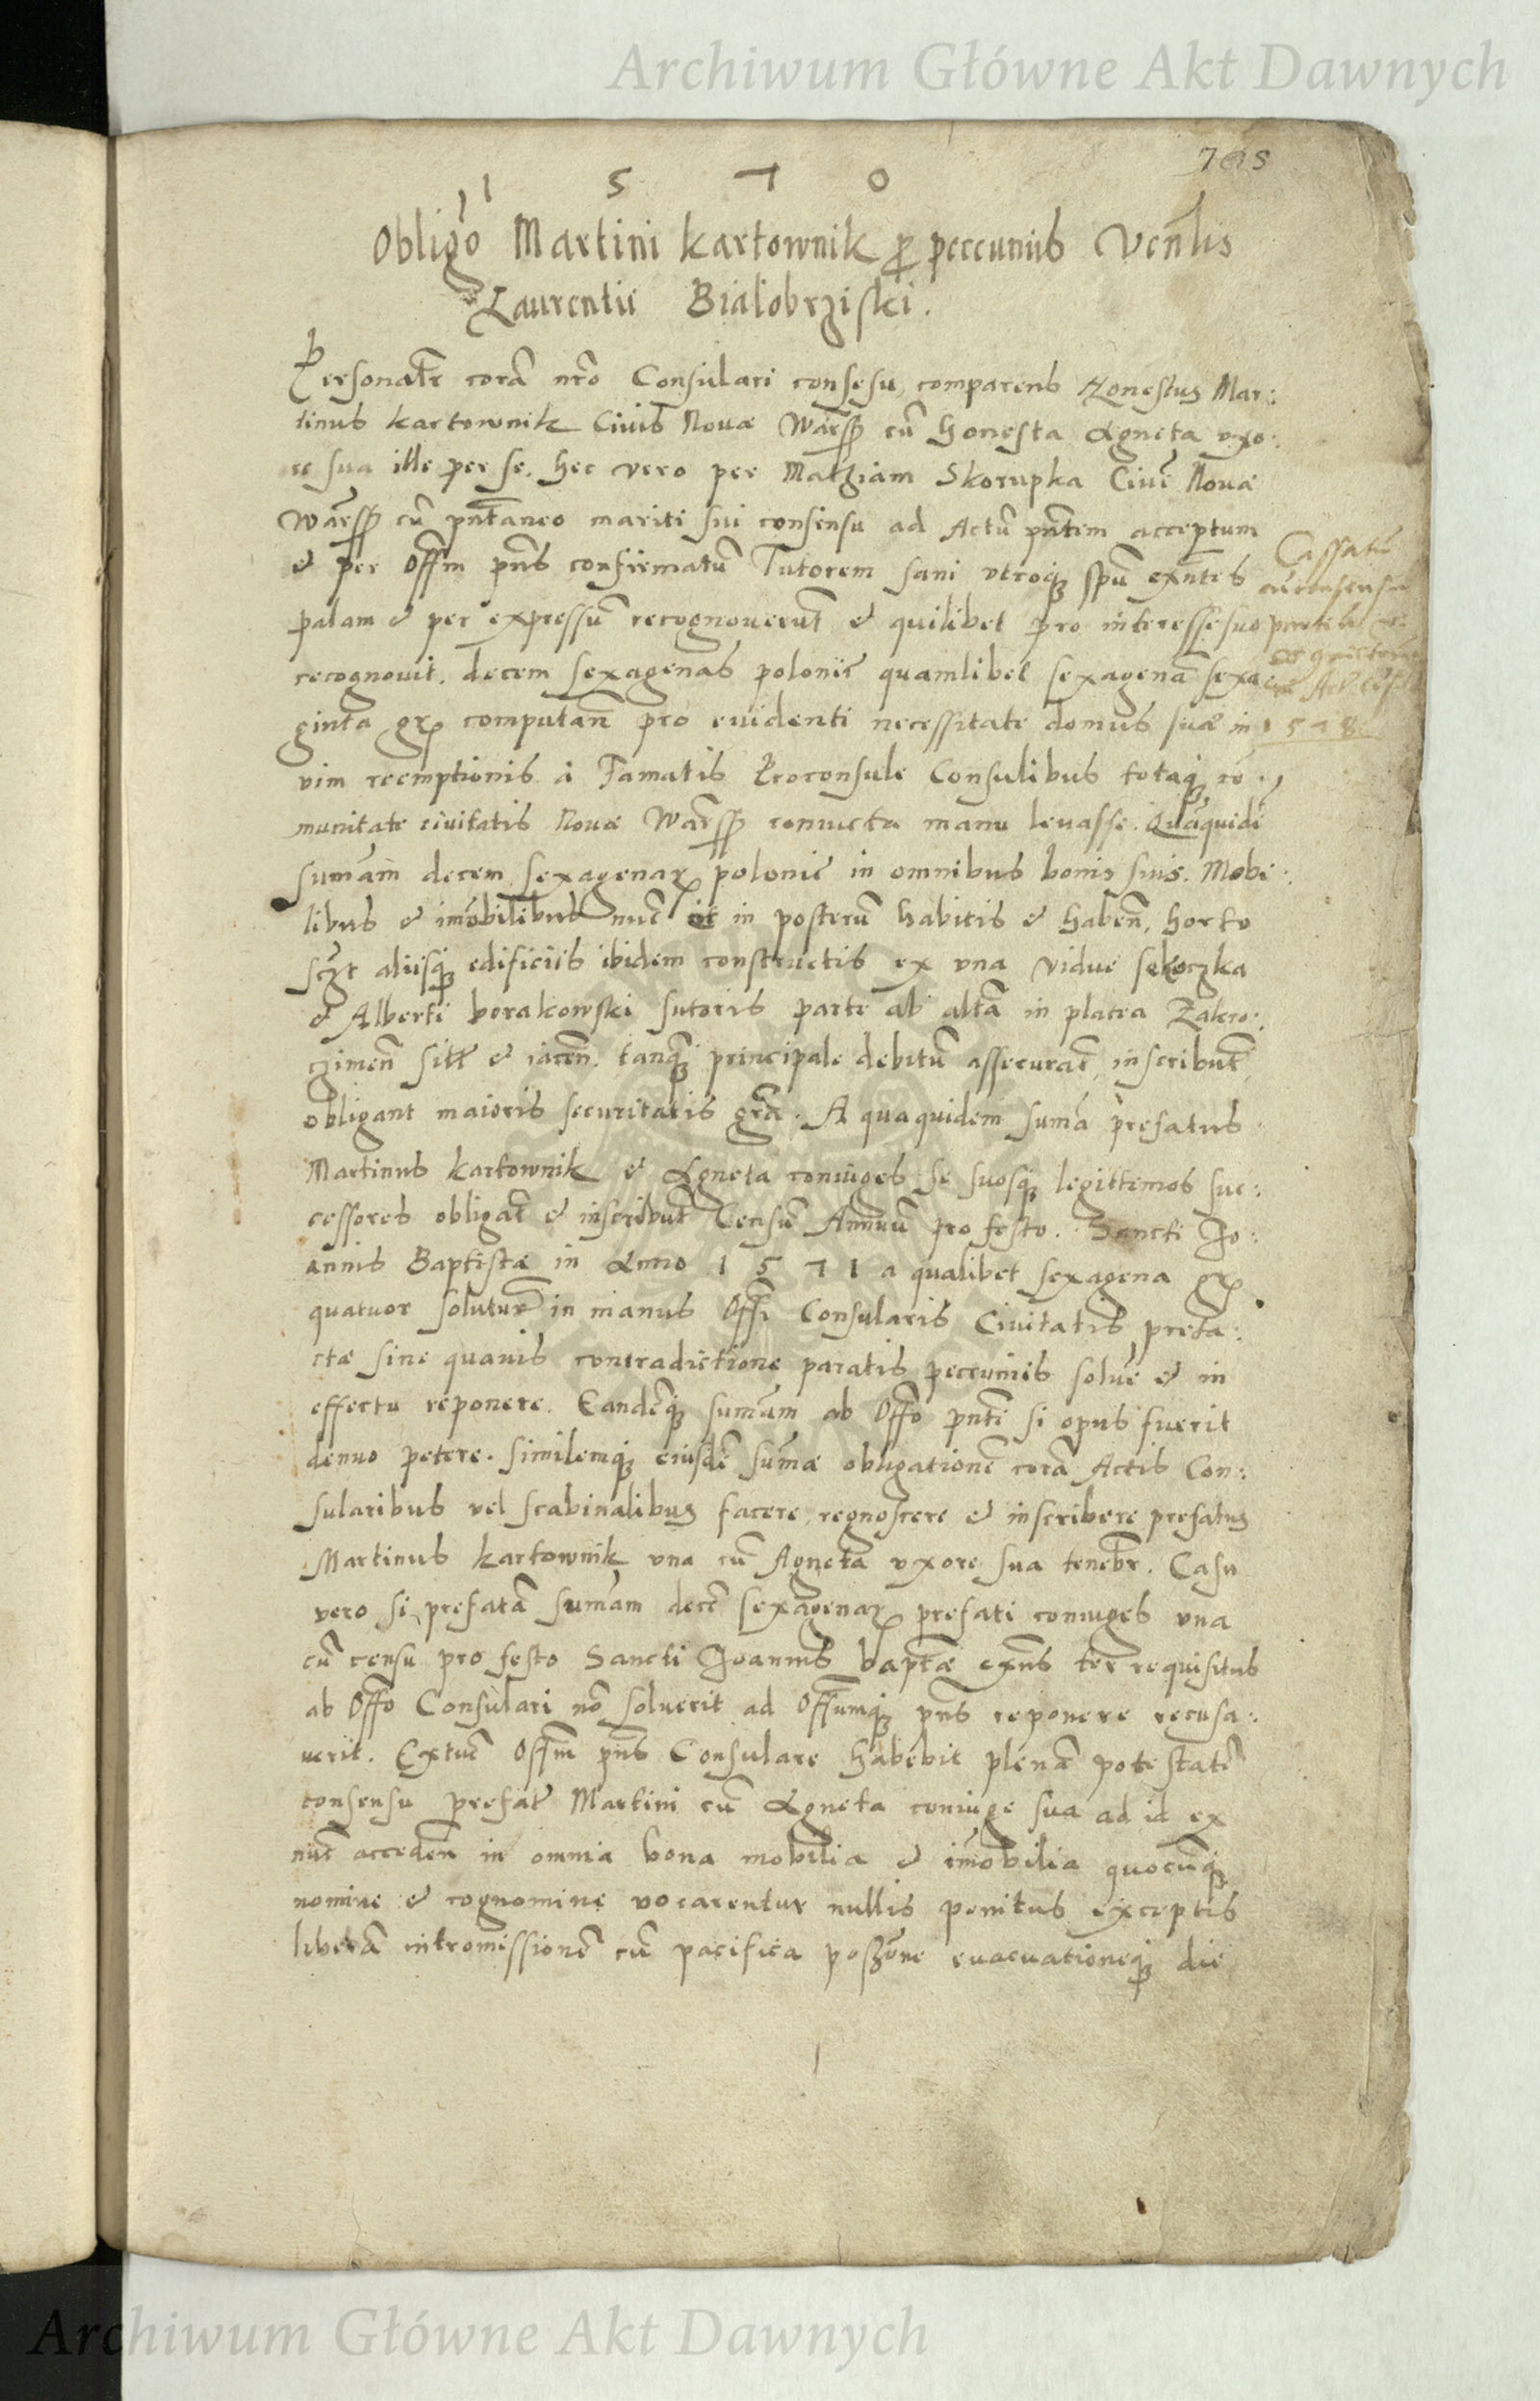 Archiwum Główne Akt Dawnych
1 5 7 0
Obligo Martini Kartownik p peccuniis Venlis
Laurentii Bialobrziski.
Personalr corā nro Consulari consesu, comparens Honestus Mar:
tinus Kartownik Civis Novae Warß cū honesta Agneta uxo:
re sua ille per se. hec vero per Mathiam Skorupka Civē Novae
Warß cū pntaneo mariti sui consensu ad Actū pntem acceptum
et per Offm pns confirmatū Tutorem sani utroqз spū exntes
palam et per expressū recognoverut et quilibet pro interesse suo
recognovit. decem sexagenas polonic quamlibet sexagenā sexa
ginta gr computan pro evidenti necessitate domus suae in
vim reemptionis à Famatis Proconsule Consulibus totaqз cō
munitate civitatis Novae Warß coniucta manu levasse. Quāquidē
sumam decem sexagenar polonic in omnibus bonis suis. Mobi:
libus et imobilibus nuc et in posterū habitis et haben, horto
sczt aliisqз edificiis ibidem constructis ex una vidue
et Alberti borakowski sutoris parte ab altā in platea Zakro:
czimen sitt et iacen. tanqз principale debitū assecurāt, inscribūt,
obligant maioris securitatis grā. A quaquidem sumā prefatus
Martinus Kartownik et Agneta coniuges se suosqз legittimos suc:
cessores obligāt et inscribūt Censū Annuū pro festo. Sancti Jo:
annis Baptistae in Anno 1 5 7 1 a qualibet sexagena gr
quatuor solutur in manus Offi Consularis Civitatis preta:
ctae sine quavis contradictione paratis peccuniis solve et in
effectu reponere. Eandēqз sumam ab Offo pnti si opus fuerit
denuo petere. Similemqз eiusdē sumae obligationē corā Actis Con:
sularibus vel scabinalibus facere, regnoscere et inscribere prefatus
Martinus Kartownik una cū Agneta uxore sua tenebr. Casu
vero si prefatā sumam decē sexagenar prefati coniuges una
cū censu pro festo Sancti Joannis baptae exns ter requisitus
ab Offo Consulari nō solverit ad Offiumqз pns reponere recusa:
verit. Extuc Offm pns Consulare habebit plenā potestatē
consensu prefat Martini cū Agneta coniuge sua ad id ex
nuc acceden in omnia bona mobilia et imobilia quocūqз
nomine et cognomine vocarentur nullis penitus exceptis
liberā intromissionē cū pacifica poßone evacuationeqз die
Cassatū
cū consensu
1578
Archiwum Główne Akt Dawnych